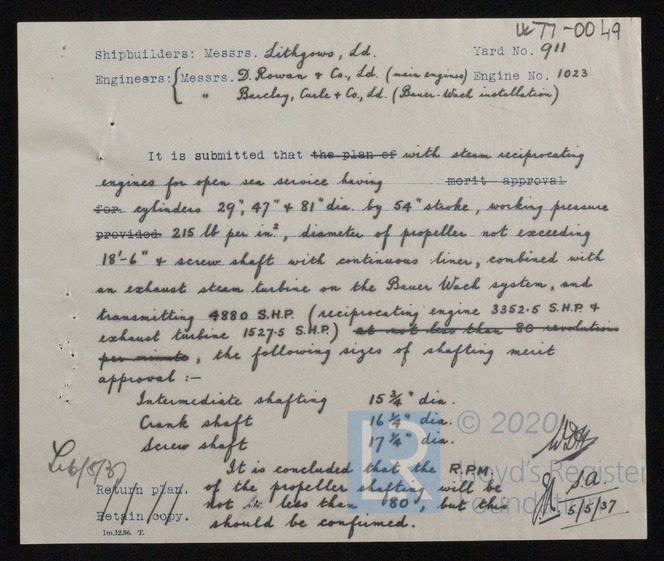 UC77-0049
Shipbuilders: Messrs. Lithgows, Ld. Yard No. 911
Engineers: { Messrs. D. Rowan & Co., Ld. (main engines) Engine No. 1023
" Barclay, Curle & Co., Ld. (Bauer-Wach installation)
It is submitted that the plan of with steam reciprocating
engines for open sea service having merit approval
for cylinders 29", 47" & 81" dia. by 54" stroke, working pressure
provided 215 lb per in.², diameter of propeller not exceeding
18'-6" & screw shaft with continuous liner, combined with
an exhaust steam turbine on the Bauer Wach system, and
transmitting 4880 S.H.P. (reciprocating engine 3352.5 S.H.P. &
exhaust turbine 1527.5 S.H.P.) at not less than 80 revolutions
per minute, the following sizes of shafting merit
approval :-
Intermediate shafting 15 3/4" dia.
Crank shaft 16 1/4" dia.
Screw shaft 17 1/4" dia.
© 2020
Lloyd's Register
Foundation
LR
It is concluded that the R.P.M.
Return plan. of the propeller shafting will be
not less than 80, but this
Retain copy. should be confirmed.
1m,12,36. T.
s.a.
5/5/37